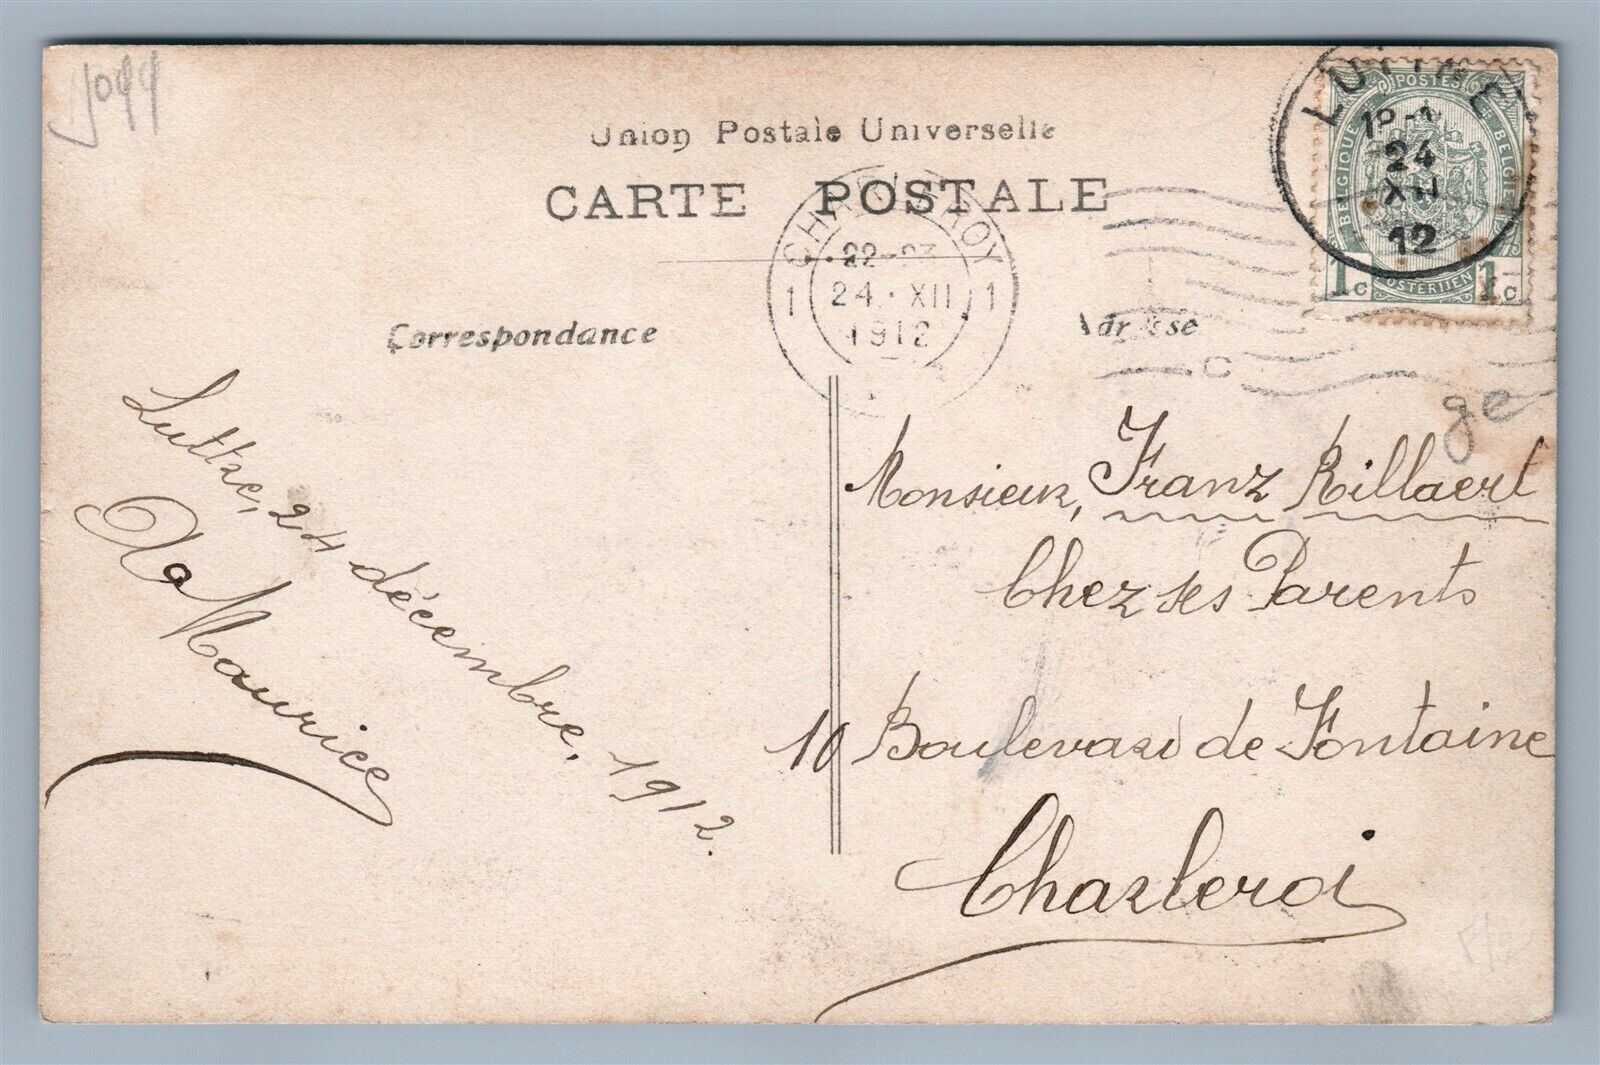 Union Postale Universelle
CARTE POSTALE
CHARLEROY
1 22-23 1
24 XII
1912
LUTTRE
24
XII
12
POSTES
BELGIQUE BELGIE
1c POSTERIJEN 1c
Correspondance
Adresse
ge
Luttre, 24 décembre, 1912.
Maurice
Monsieur, Franz Rillaert
Chez ses Parents
10 Boulevard de Fontaine
Charleroi